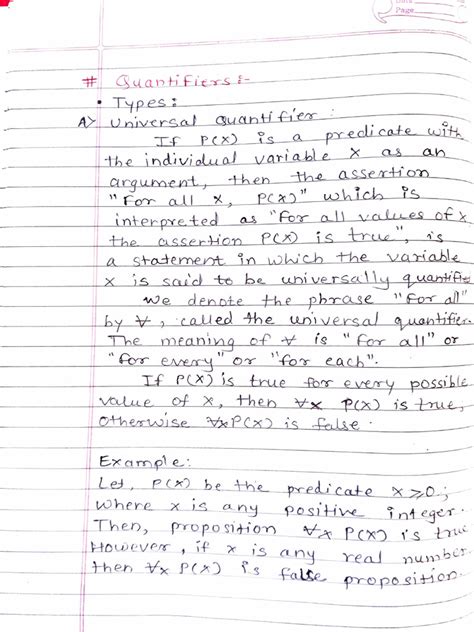 Page
# Quantifiers :-
• Types :
A> Universal Quantifier :
If P(X) is a predicate with
the individual variable X as an
argument, then the assertion
"For all X, P(X)" which is
interpreted as "For all values of X
the assertion P(X) is true", is
a statement in which the variable
X is said to be universally quantifie
We denote the phrase "For all"
by ∀, called the universal quantifier.
The meaning of ∀ is "for all" or
"for every" or "for each".
If P(X) is true for every possible
value of X, then ∀x P(X) is true,
otherwise ∀xP(X) is false.
Example :
Let, P(X) be the predicate x≥0;
where x is any positive integer.
Then, proposition ∀x P(X) is true
However, if x is any real number
then ∀x P(X) is false proposition.